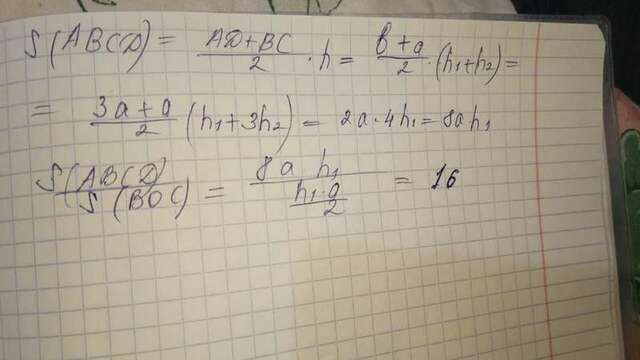 S(ABCD) = (AD+BC)/2 · h = (b+a)/2 · (h₁+h₂) =
= (3a+a)/2 (h₁+3h₂) = 2a·4h₁ = 8ah₁
S(ABCD)/S(BOC) = (8a h₁)/((h₁·a)/2) = 16